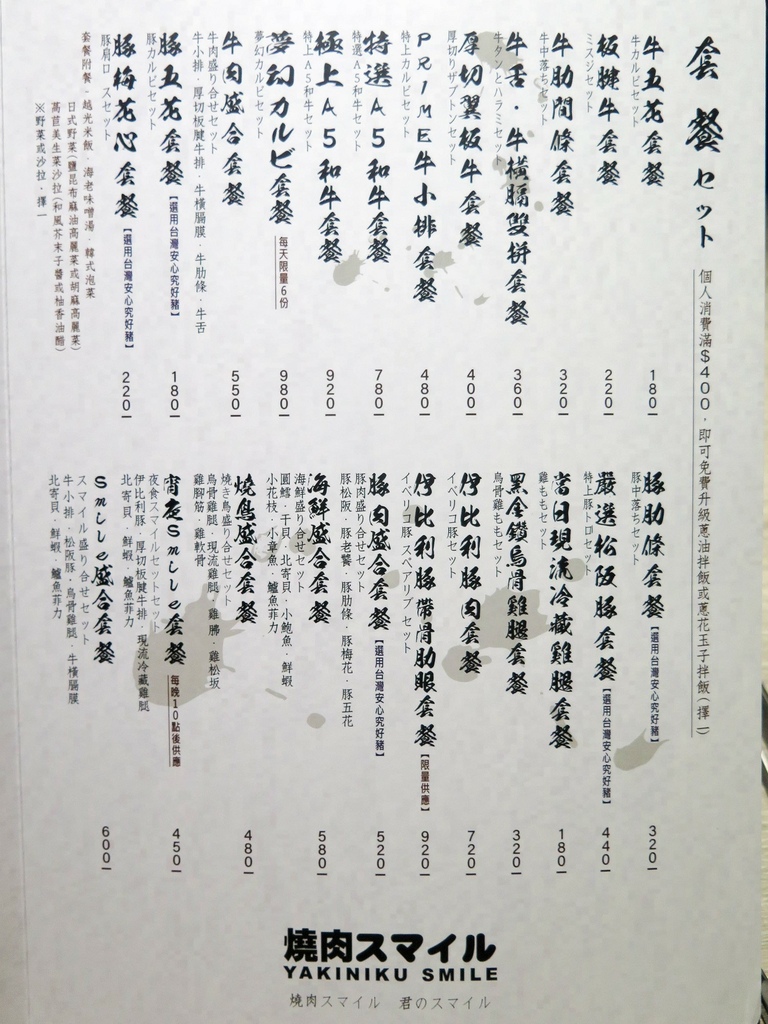 套餐セット
個人消費滿$400，即可免費升級蔥油拌飯或蔥花玉子拌飯(擇一)
牛五花套餐 180
牛カルビセット
板腱牛套餐 220
ミスジセット
牛肋間條套餐 320
牛中落ちセット
牛舌·牛橫膈雙拼套餐 360
牛タンとハラミセット
厚切翼板牛套餐 400
厚切りザブトンセット
PRIME牛小排套餐 480
特上カルビセット
特選A5和牛套餐 780
特選A5和牛セット
極上A5和牛套餐 920
特上A5和牛セット
夢幻カルビ套餐 每天限量6份 980
夢幻カルビセット
牛肉盛合套餐 550
牛肉盛り合せセット
牛小排·厚切板腱牛排·牛橫膈膜·牛肋條·牛舌
豚五花套餐【選用台灣安心究好豬】 180
豚カルビセット
豚梅花心套餐【選用台灣安心究好豬】 220
豚肩ロースセット
套餐附餐-越光米飯·海老味噌湯·韓式泡菜
日式野菜(鹽昆布麻油高麗菜或胡麻高麗菜)
萵苣美生菜沙拉(和風芥末子醬或柚香油醋)
※野菜或沙拉·擇一
豚肋條套餐【選用台灣安心究好豬】 320
豚中落ちセット
嚴選松阪豚套餐【選用台灣安心究好豬】 440
特上豚トロセット
當日現流冷藏雞腿套餐 180
雞ももセット
黑金鑽烏骨雞腿套餐 320
烏骨雞ももセット
伊比利豚肉套餐 720
イベリコ豚セット
伊比利豚帶骨肋眼套餐【限量供應】 920
イベリコ豚スペアリブセット
豚肉盛合套餐【選用台灣安心究好豬】 520
豚肉盛り合せセット
豚松阪·豚老饕·豚肋條·豚梅花·豚五花
海鮮盛合套餐 580
海鮮盛り合せセット
圓鱈·干貝·北寄貝·小鮑魚·鮮蝦
小花枝·小章魚·鱸魚菲力
燒鳥盛合套餐 480
燒き鳥盛り合せセット
烏骨雞腿·現流雞腿·雞胗·雞松坂
雞腳筋·雞軟骨
宵夜Smile套餐 每晚10點後供應 450
夜食スマイルセットセット
伊比利豚·厚切板腱牛排·現流冷藏雞腿
北寄貝·鮮蝦·鱸魚菲力
Smile盛合套餐 600
スマイル盛り合せセット
牛小排·松阪豚·烏骨雞腿·牛橫膈膜
北寄貝·鮮蝦·鱸魚菲力
燒肉スマイル
YAKINIKU SMILE
燒肉スマイル 君のスマイル